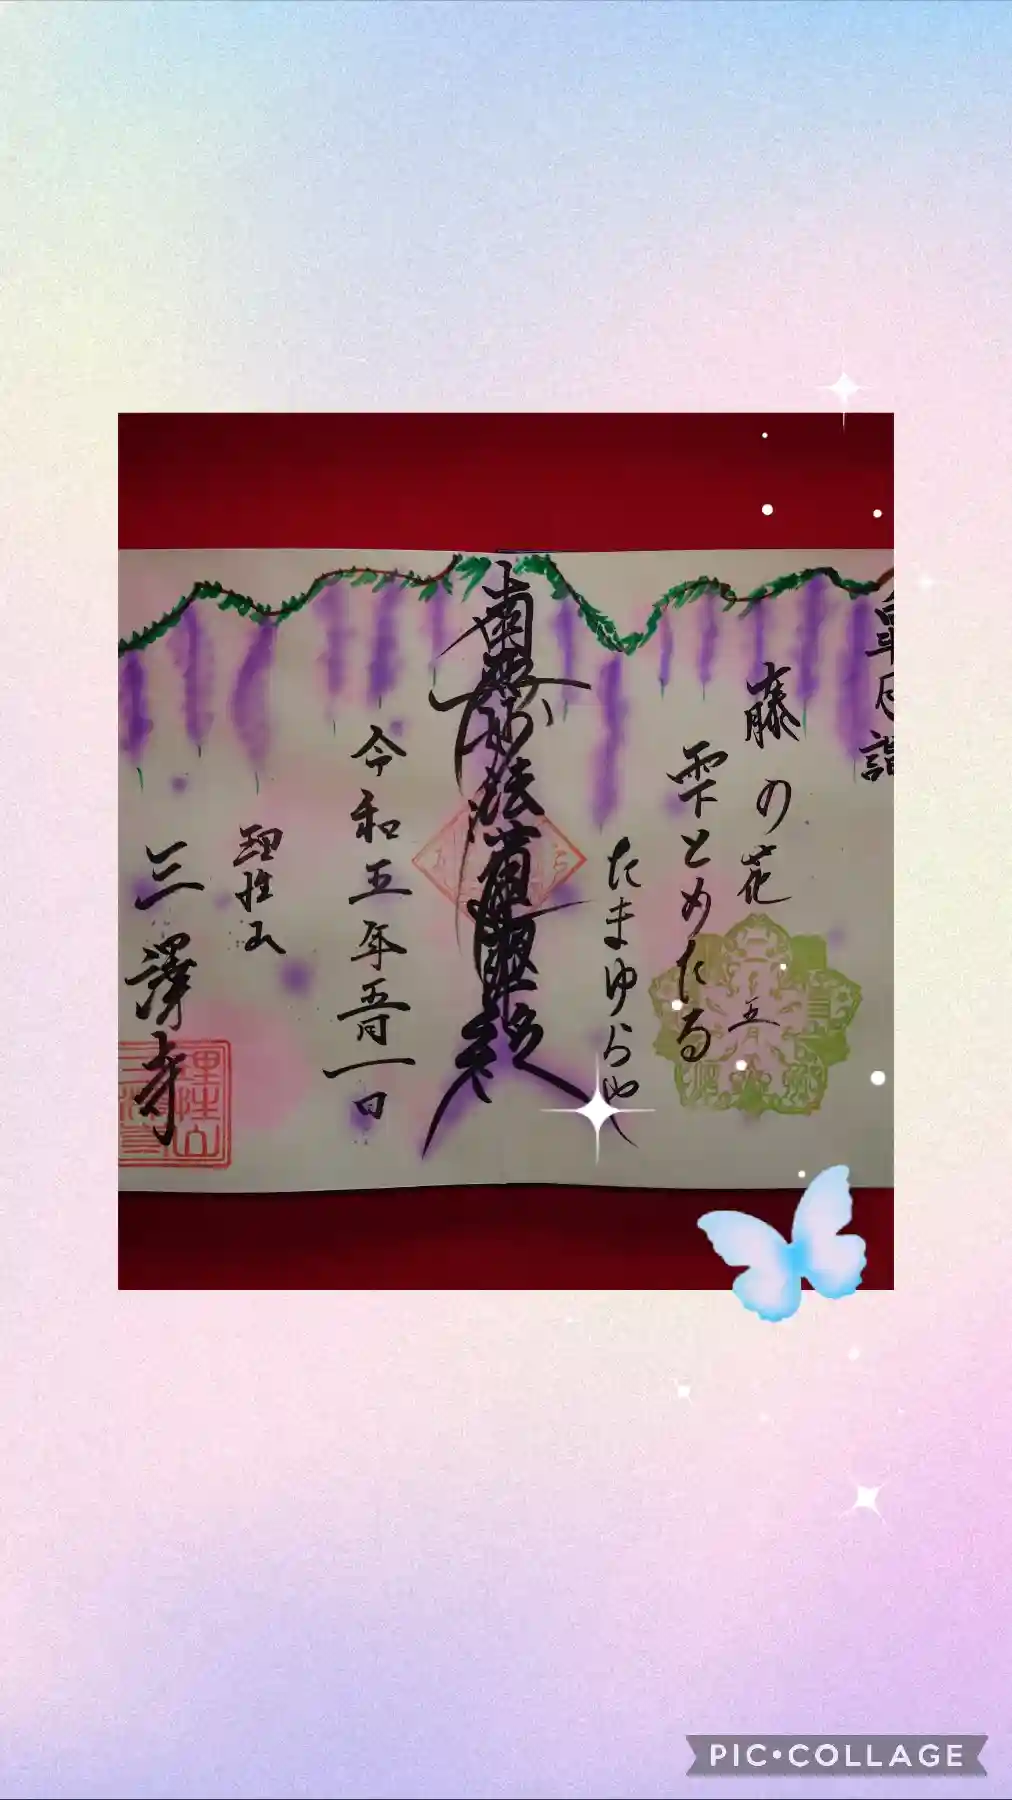 奉拝
月詣
藤の花
雫とめたる
たまゆらや
五月
南無妙法蓮華経
令和五年五月一日
理性山
三澤寺
PIC•COLLAGE